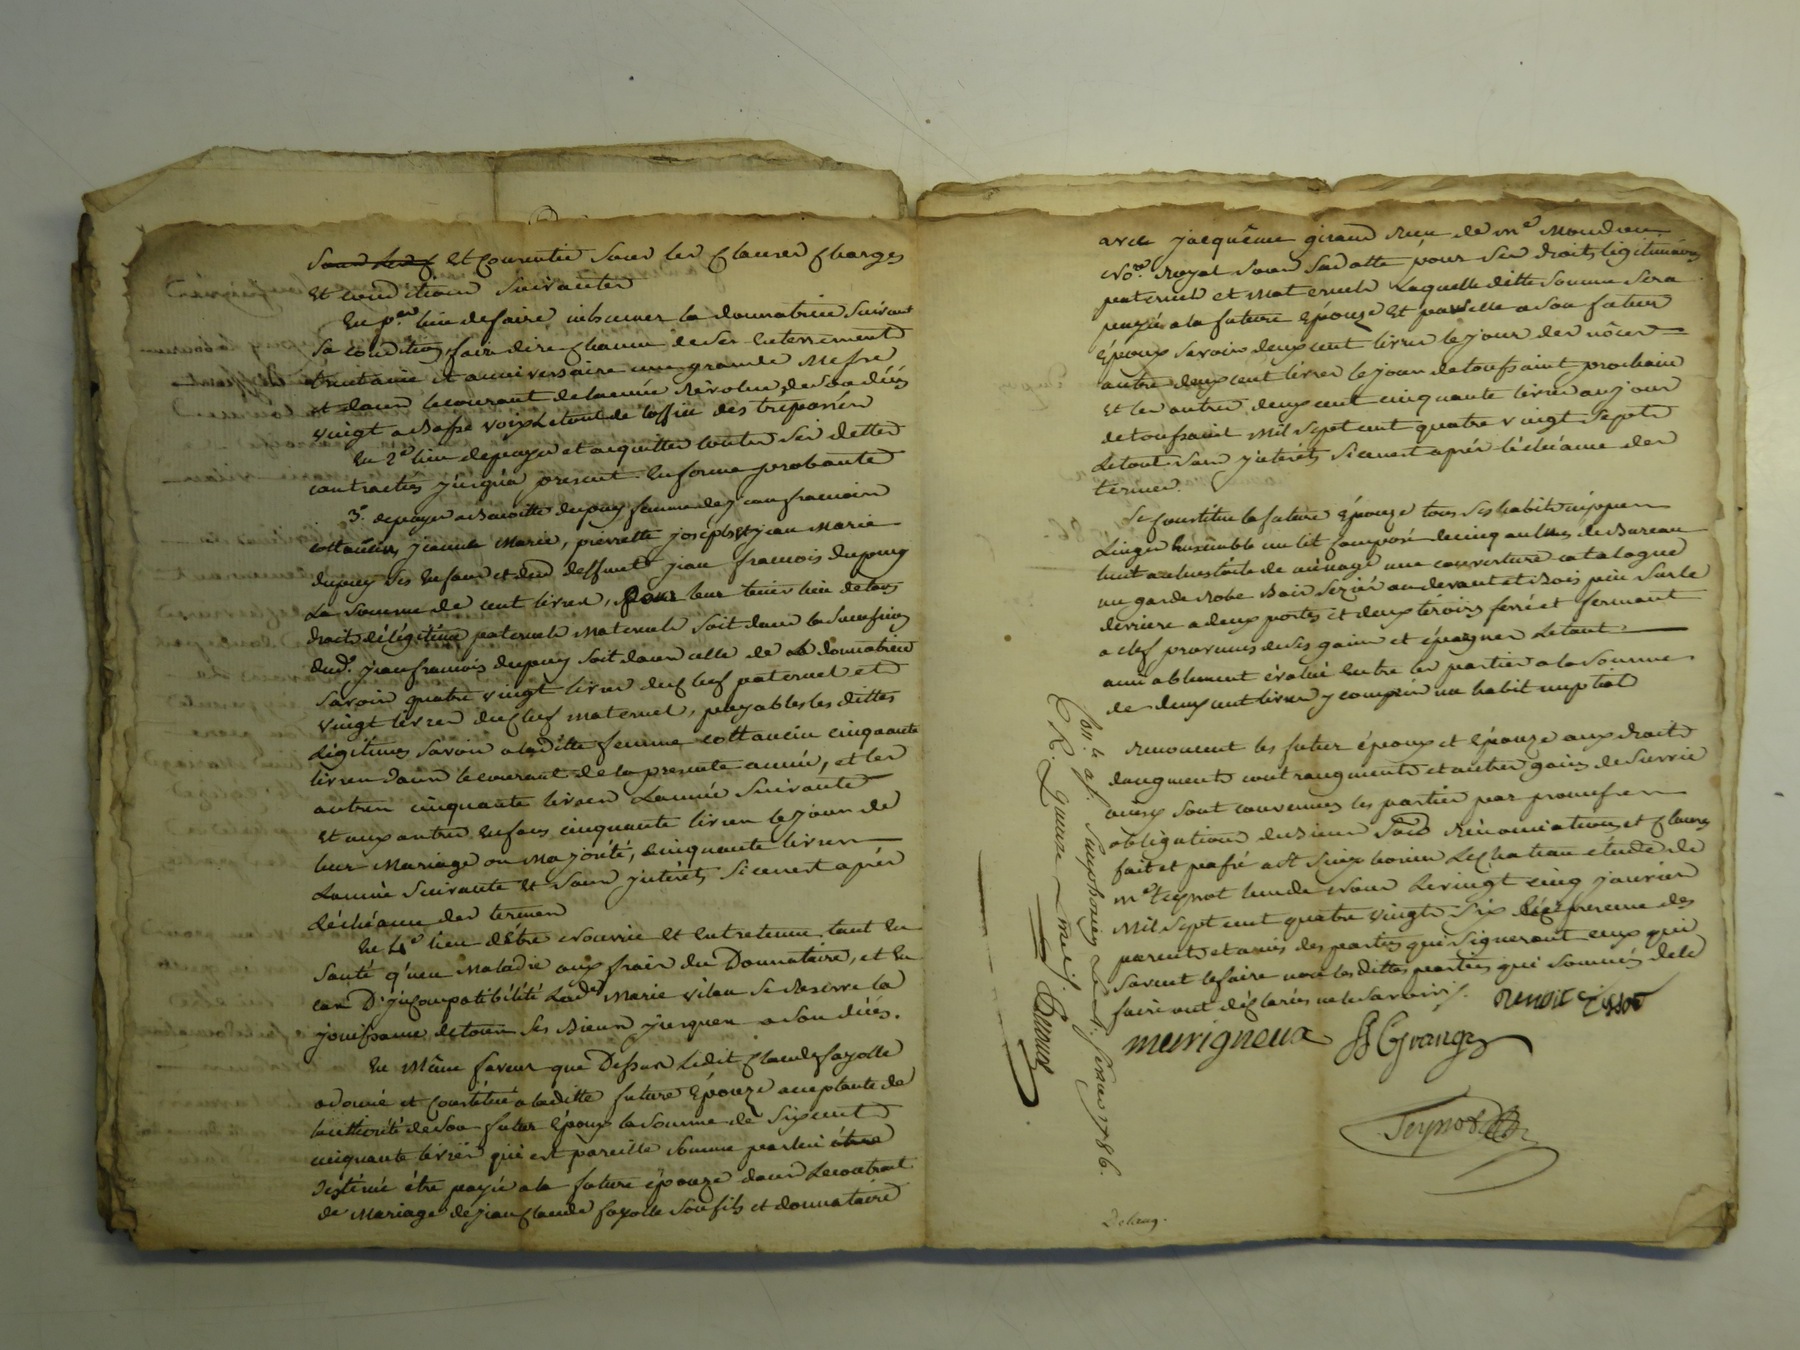 et consentie sous les clauses charges
et conditions suivantes
En p.er lieu de faire inhumer la donnatrice suivant
sa condition faire dire chacun de ses enterrement
trentaine et anniversaire une grande Messe
et dans le courant de l'année Révolue de son décés
vingt a Basse voix le tout de l'office des trépassés
En 2.e lieu de payer et acquitter toutes ses dettes
contractés jusqu'a present en forme probante
3.e de payer a Benoitte dupuy femme de jean francois
cottancin, jeanne Marie, pierrette joseph et jean Marie
dupuy ses enfans et du deffunt jean francois dupuy
La somme de cent livres, pour leur tenir lieu de tous
droits de légitime paternels Maternels soit dans la succession
dud.t jean francois dupuy soit dans celle de la donnatrice
savoir quatre vingt livres du chef paternel et
vingt livres du chef Maternel, payables les dittes
Légitimes savoir a laditte femme cottancin cinquante
livres dans le courant de la presente année, et les
autres cinquante livres l'année suivante
et aux autres enfans cinquante livres le jour de
leur Mariage ou Majorité, cinquante livres
L'année suivante et sans jntérêts si ce n'est après
L'échéance des termes
En 4.e lieu d'être nourrie et entretenue tant en
santé qu'en Maladie aux frais du Donnataire, et en
cas D'jncompatibilité lad.e Marie vilan se Reserve la
jouissance de tous ses Biens jusques a son décés.
En Même faveur que Dessus Ledit Claude fayolle
a donné et constitué a laditte future Epouze acceptante de
l'authorité de son futur Epoux la somme de six cent
cinquante livres qui est pareille somme par lui
destiné être payée a la future épouze dans Le contrat
de Mariage de jean Claude fayolle son fils et donnataire
avec jacquême giraud Rieu de M.e Mondon
No.re Royal sous sa dotte pour ses droits légitimaires
paternel et Maternels Laquelle ditte somme sera
payée a la future Epouze et par elle a son futur
Epoux savoir deux cent livres le jour des nôces
autre deux cent livres le jour de toussaint prochain
et les autres deux cent cinquante livres au jour
de toussaint Mil sept cent quatre vingt sept
Le tout sans jntérêts si ce n'est après l'échéance des
termes.
Se constitue la future Epouze tous ses habits nippes
Linges Ensemble un lit composé de cinq aulnes de Bureau
huit aulnes toile de ménage une couverture catalogne
un garde Robe Bois Sezier au devant et Bois pin sur le
derriere a deux portes et deux tiroirs ferré et fermant
a clef provenus de ses gains et épargnes Le tout
amiablement évalué entre les parties a la somme
de deux cent livres y compris un habit nuptial
Renoncent les futur époux et Epouze aux droits
d'augments contraugments et autres gains de survie
ainsy sont convenues les parties par promesses
obligations de Biens Sous Rénonciations et Clauses
fait et passé a St Simphorien Le chateau étude de
M.e teynot l'un de Nous Le vingt cinq janvier
Mil sept cent quatre vingt six presence des
parents et amis des parties qui signeront ceux qui
savent le faire non les dittes parties qui sommés de le
faire ont déclarés ne le savoir.
meurigneux Grange
Teynot
Con.lé a St. Simphorien Le chat. fevrier 1786.